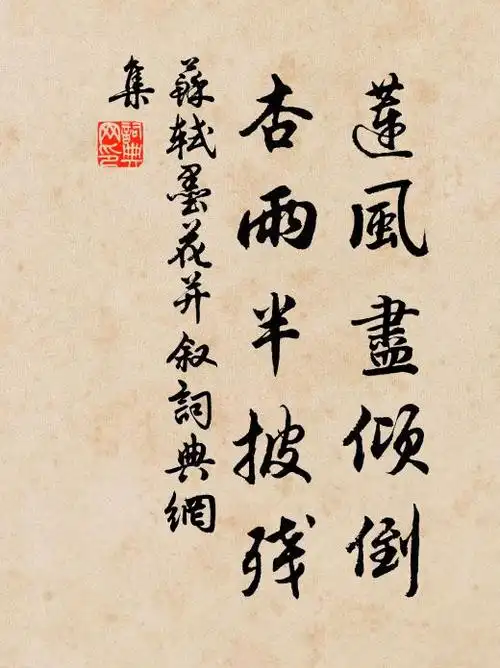 蓮風盡傾倒
杏雨半披残
蘇軾墨花并叙詞典網
集
詞典网印